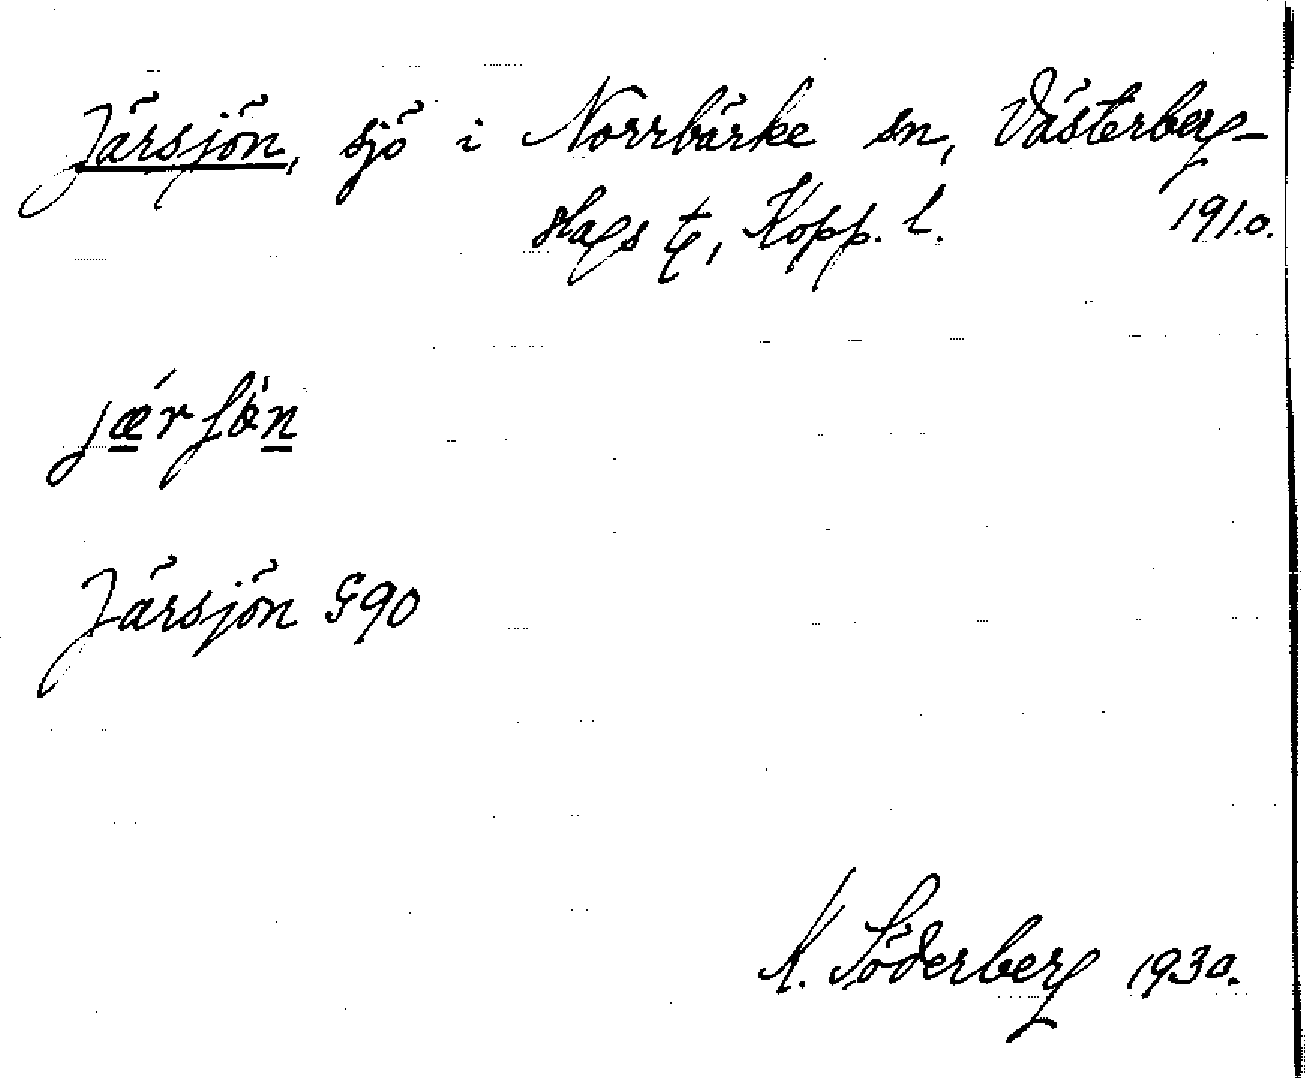 Järsjön, sjö i Norrbärke sn, Västerbergs-
lags tg, Kopp. l. 1910.
jǽrʃö̀n
Järsjön G90
K. Söderberg 1930.